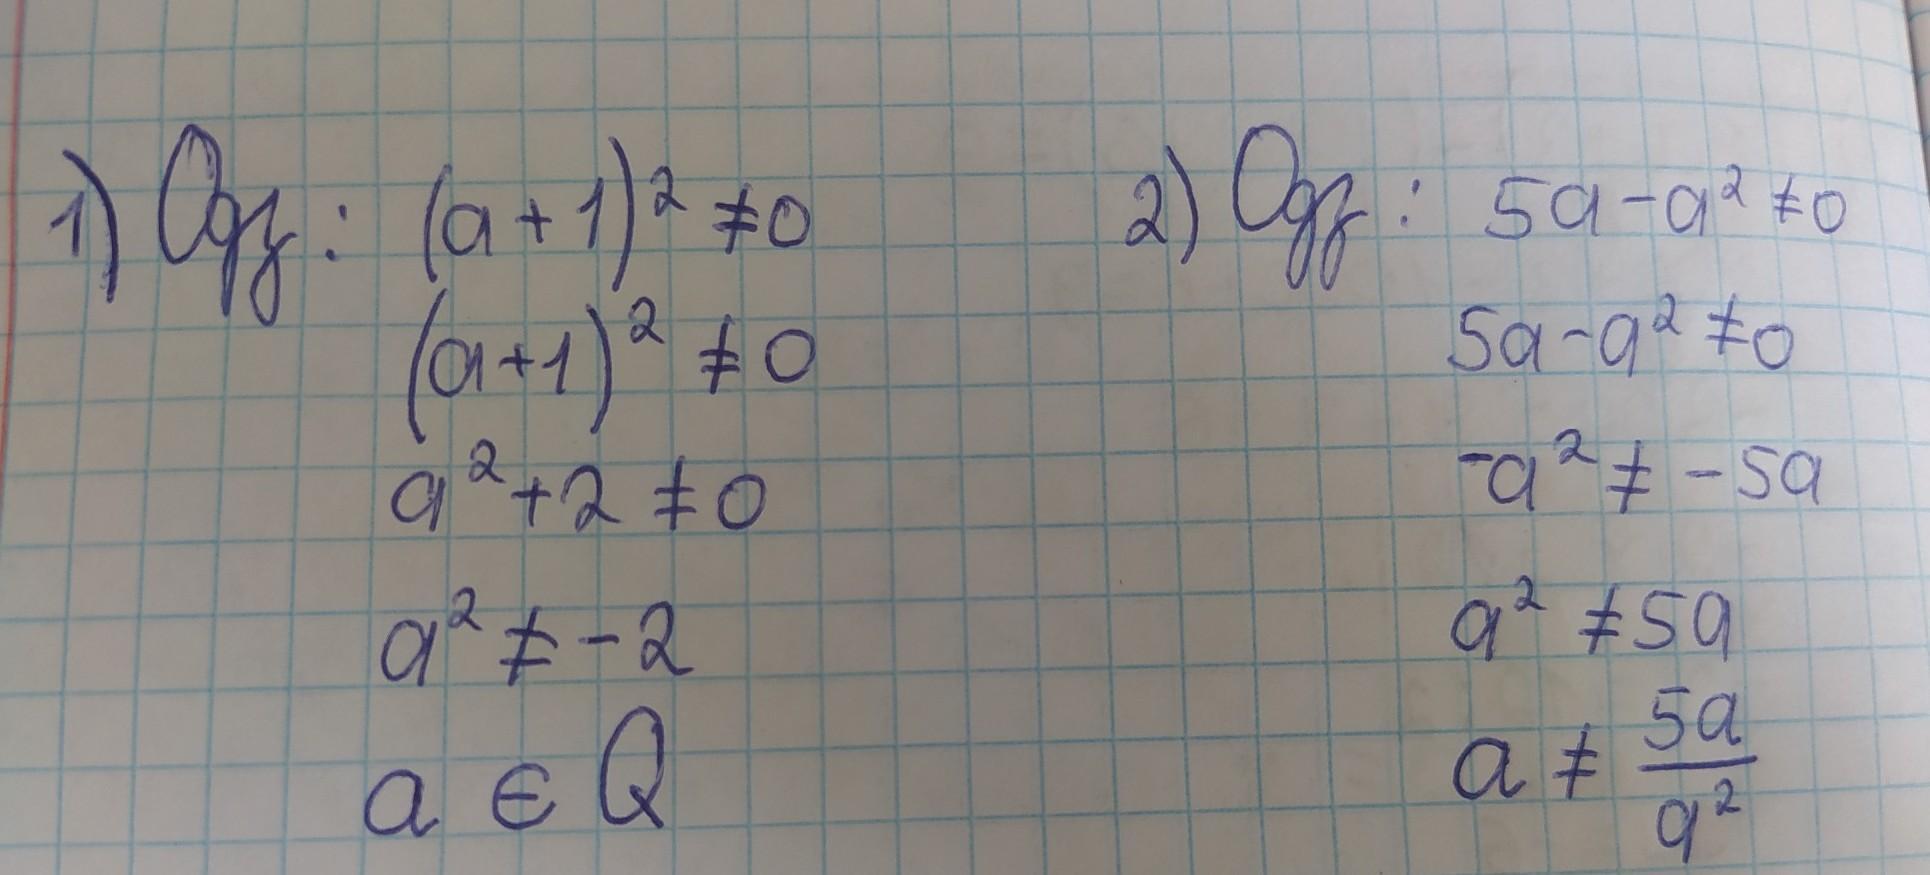 1) Одз: (a+1)² ≠ 0
(a+1)² ≠ 0
a² + 2 ≠ 0
a² ≠ -2
a ∈ Q
2) Одз: 5a - a² ≠ 0
5a - a² ≠ 0
-a² ≠ -5a
a² ≠ 5a
a ≠ 5a/a²